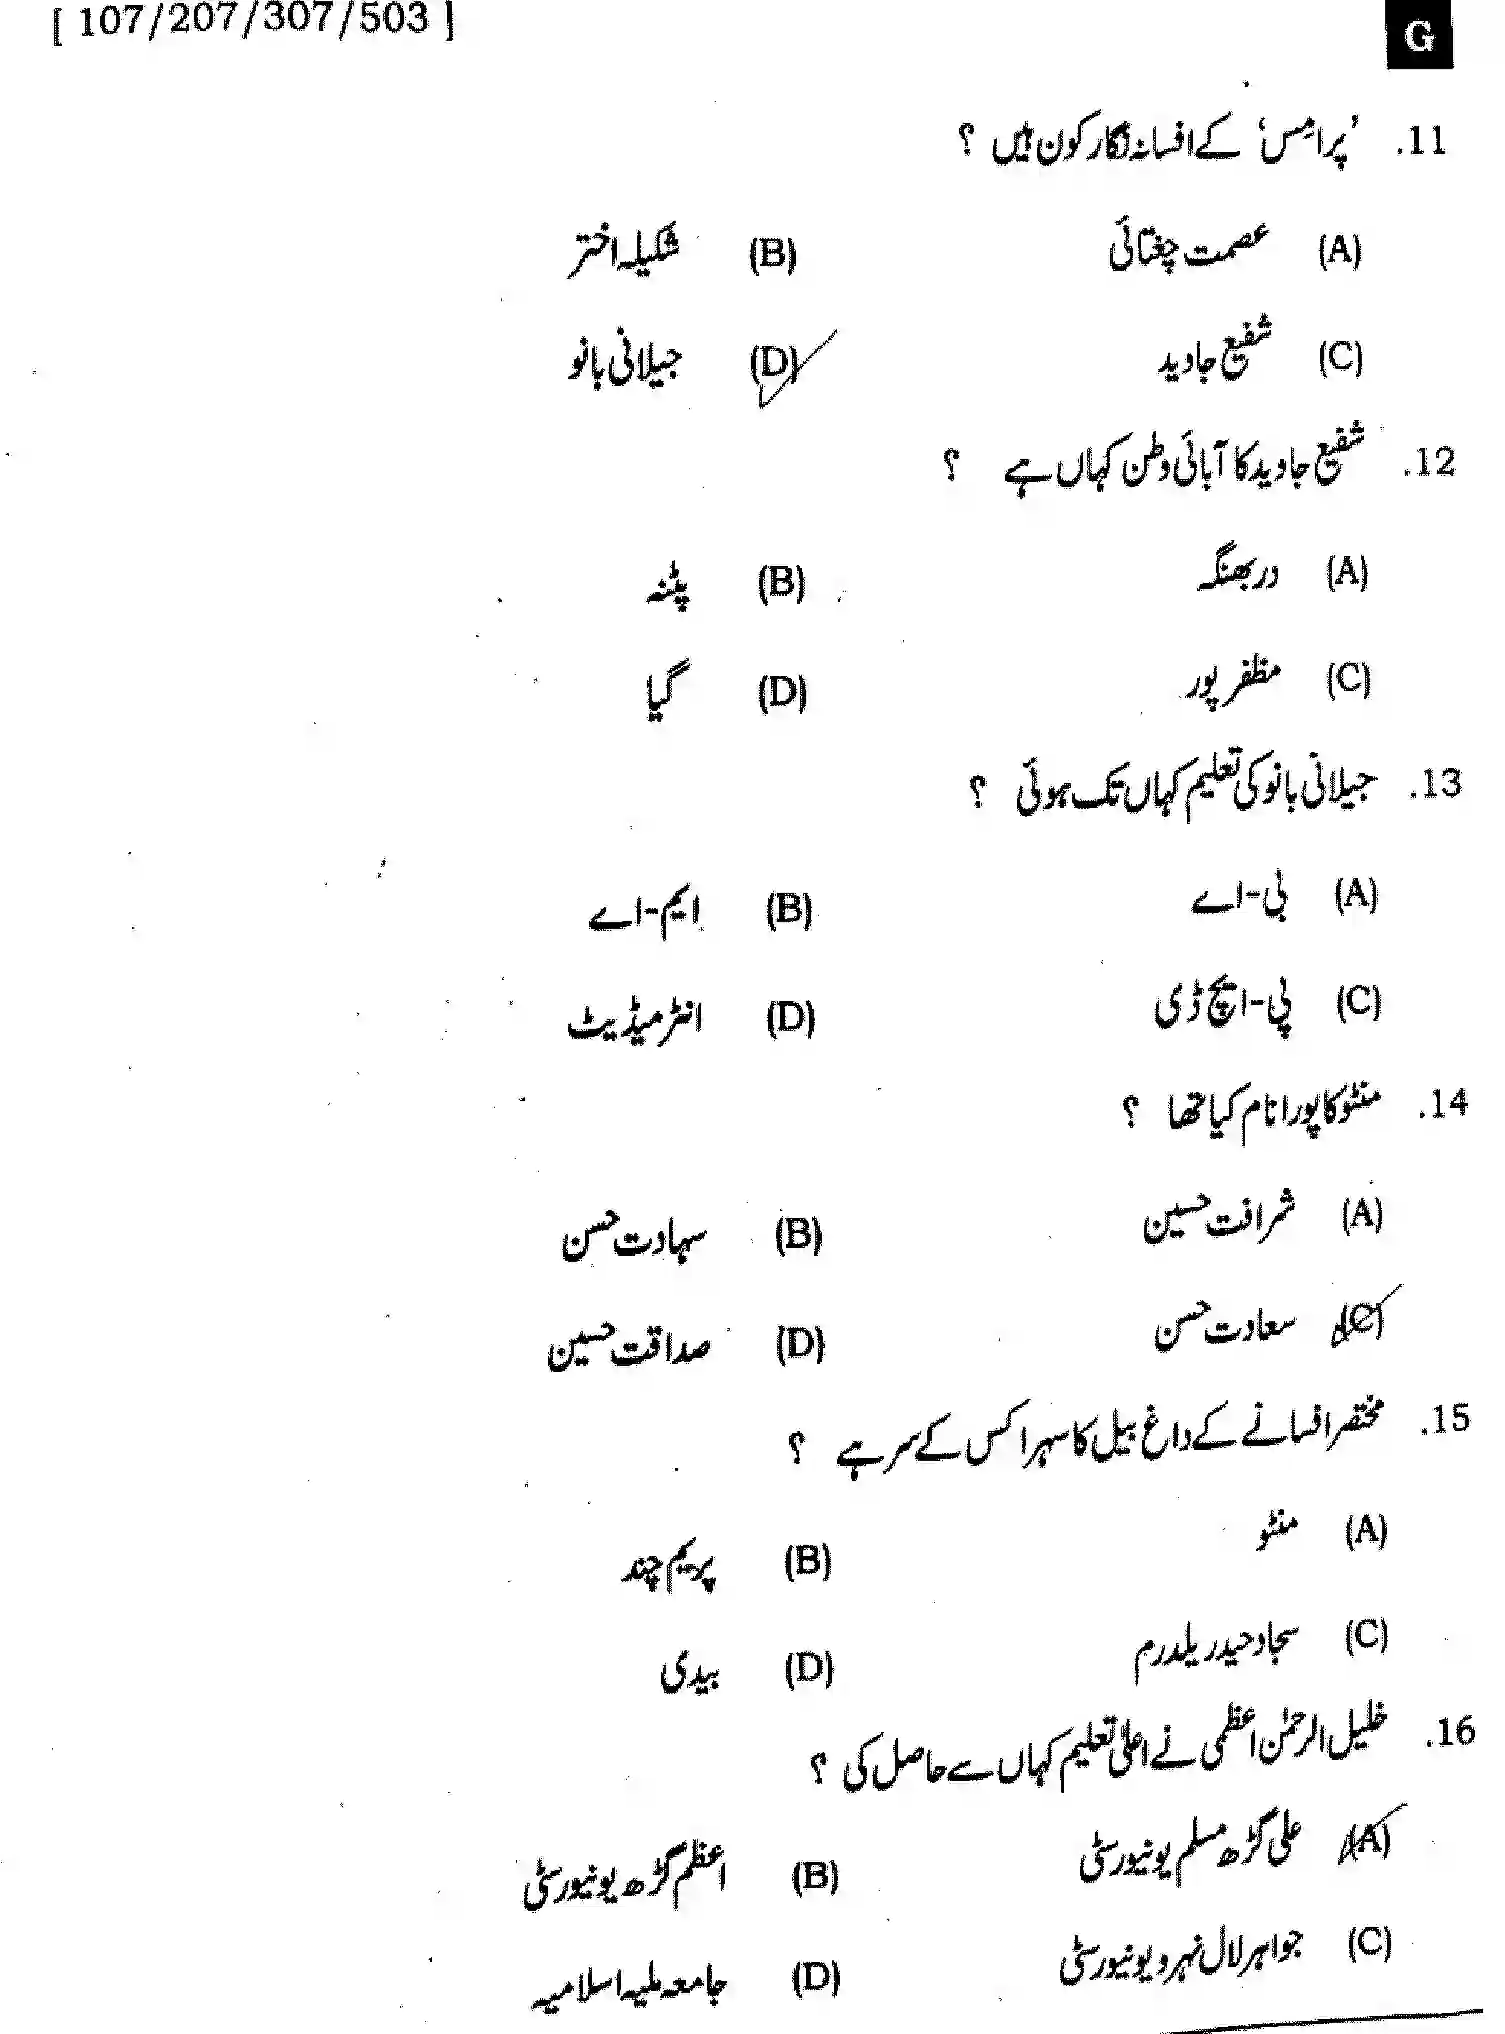 [ 107/207/307/503 ]
G
11. ’پرامِس‘ کے افسانہ نگار کون ہیں ؟
(A) عصمت چغتائی (B) شکیلہ اختر
(C) شفیع جاوید (D) جیلانی بانو
12. شفیع جاوید کا آبائی وطن کہاں ہے ؟
(A) دربھنگہ (B) پٹنہ
(C) مظفر پور (D) گیا
13. جیلانی بانو کی تعلیم کہاں تک ہوئی ؟
(A) بی-اے (B) ایم-اے
(C) پی-ایچ ڈی (D) انٹرمیڈیٹ
14. منٹو کا پورا نام کیا تھا ؟
(A) شرافت حسین (B) سہادت حسن
(C) سعادت حسن (D) صداقت حسین
15. مختصر افسانے کے داغ بیل کا سہرا کس کے سر ہے ؟
(A) منٹو (B) پریم چند
(C) سجاد حیدر یلدرم (D) بیدی
16. خلیل الرحمٰن اعظمی نے اعلیٰ تعلیم کہاں سے حاصل کی ؟
(A) علی گڑھ مسلم یونیورسٹی (B) اعظم گڑھ یونیورسٹی
(C) جواہر لال نہرو یونیورسٹی (D) جامعہ ملیہ اسلامیہ